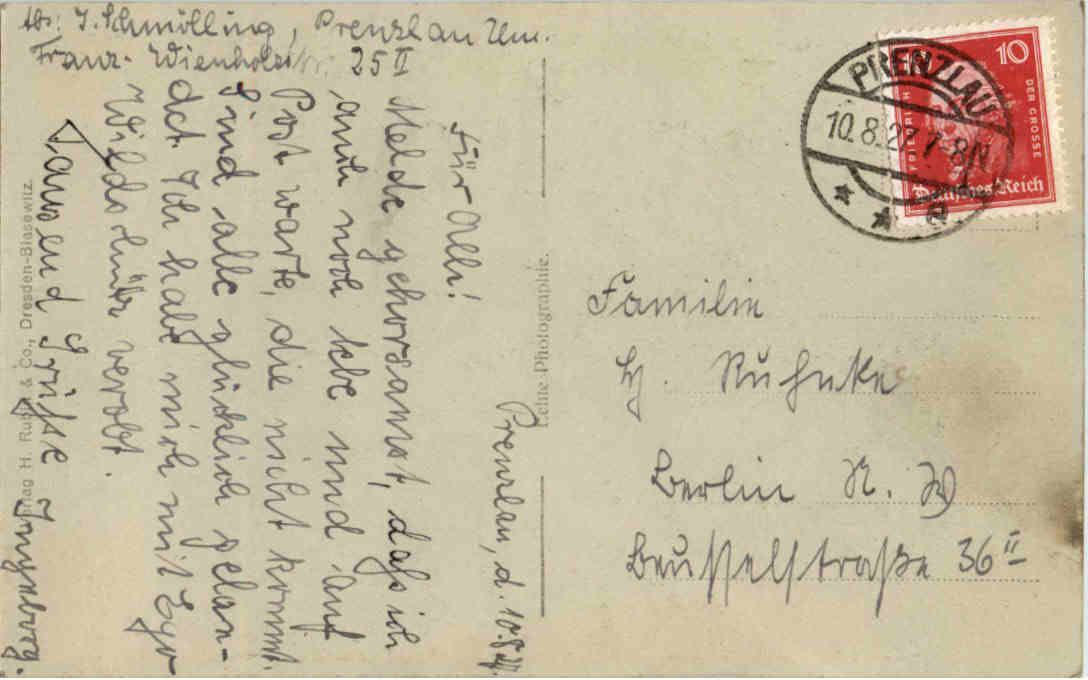 Abs: I. Schmölling, Prenzlau Um.
Franz-Wienholzstr. 25 II
Prenzlau, d. 10.8.27.
Für Alle!
Melde gehorsamst, dahs ich
auch noch lebe und auf
Post warte, die nicht kommt.
Sind alle glücklich gelan-
det. Ich habe mich mit
verlobt.
Tausend Grüße
Verlag H. Rubin & Co., Dresden-Blasewitz.
Echte Photographie.
PRENZLAU
10.8.27 7-8N
10
FRIEDRICH DER GROSSE
Deutsches Reich
Familie
H. Ruhnke
Berlin N. W
Beusselstraße 36 II